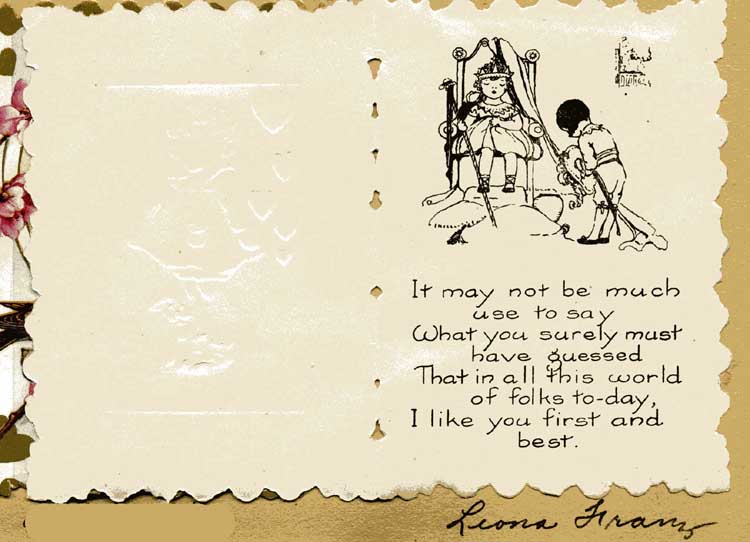 It may not be much
use to say
What you surely must
have guessed
That in all this world
of folks to-day,
I like you first and
best.
Leona Franz